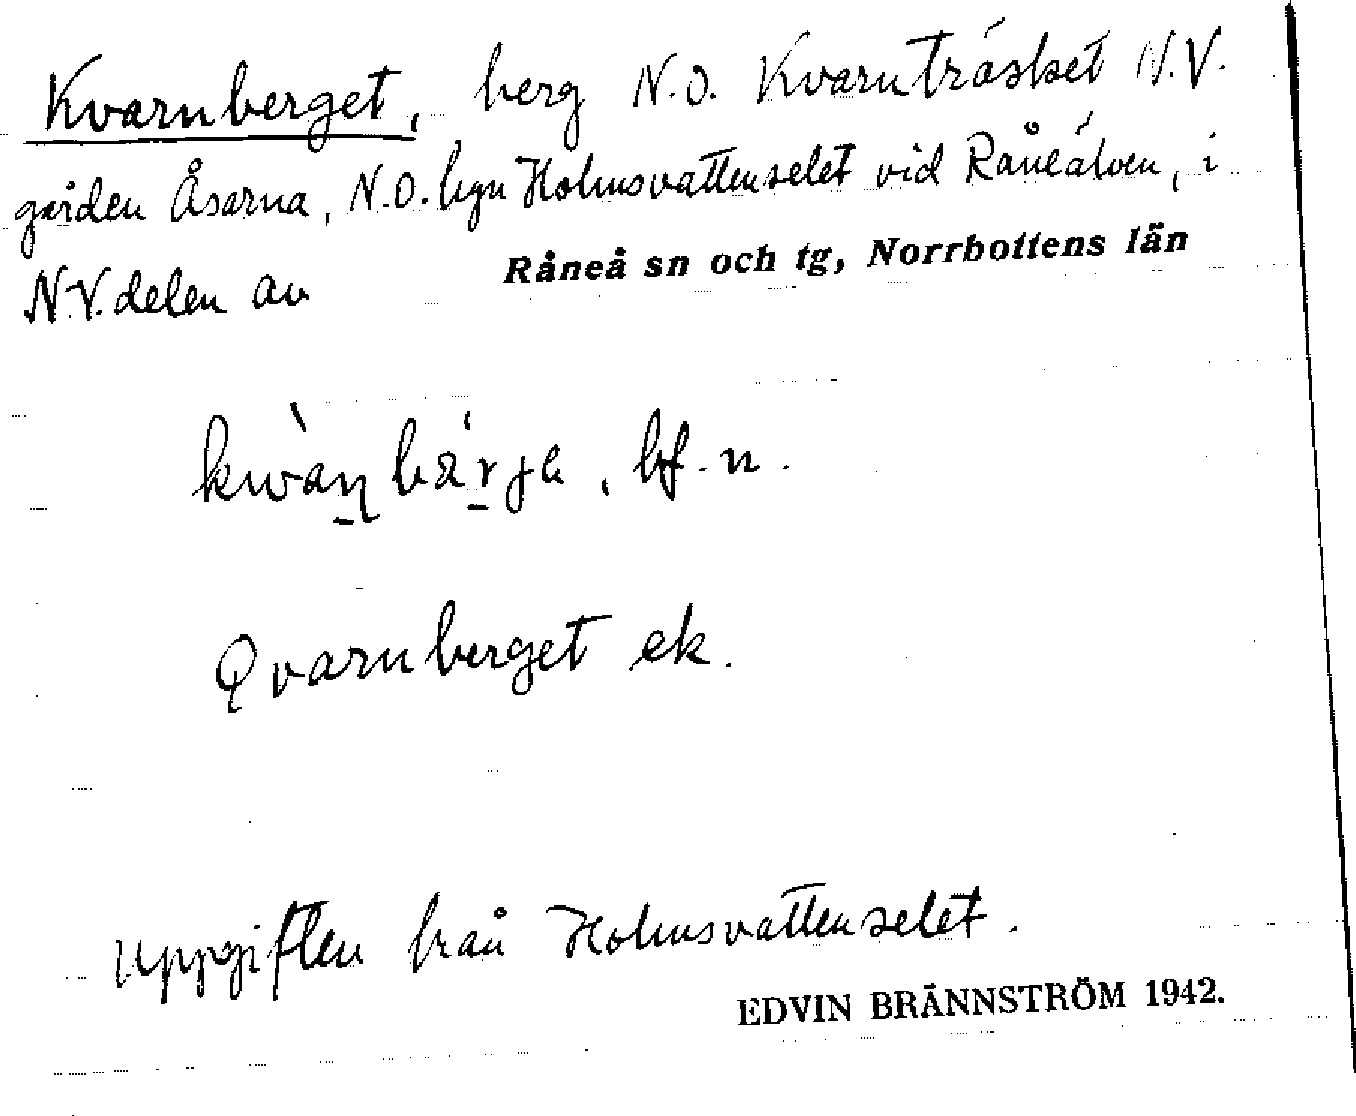 Kvarnberget, berg N.O. Kvarnträsket N.V.
gården Åsarna, N.O. byn Holmsvattenselet vid Råneälven, i
N.V. delen av Råneå sn och tg, Norrbottens län
bf. n.
Qvarnberget ek.
Uppgiften från Holmsvattenselet.
EDVIN BRÄNNSTRÖM 1942.